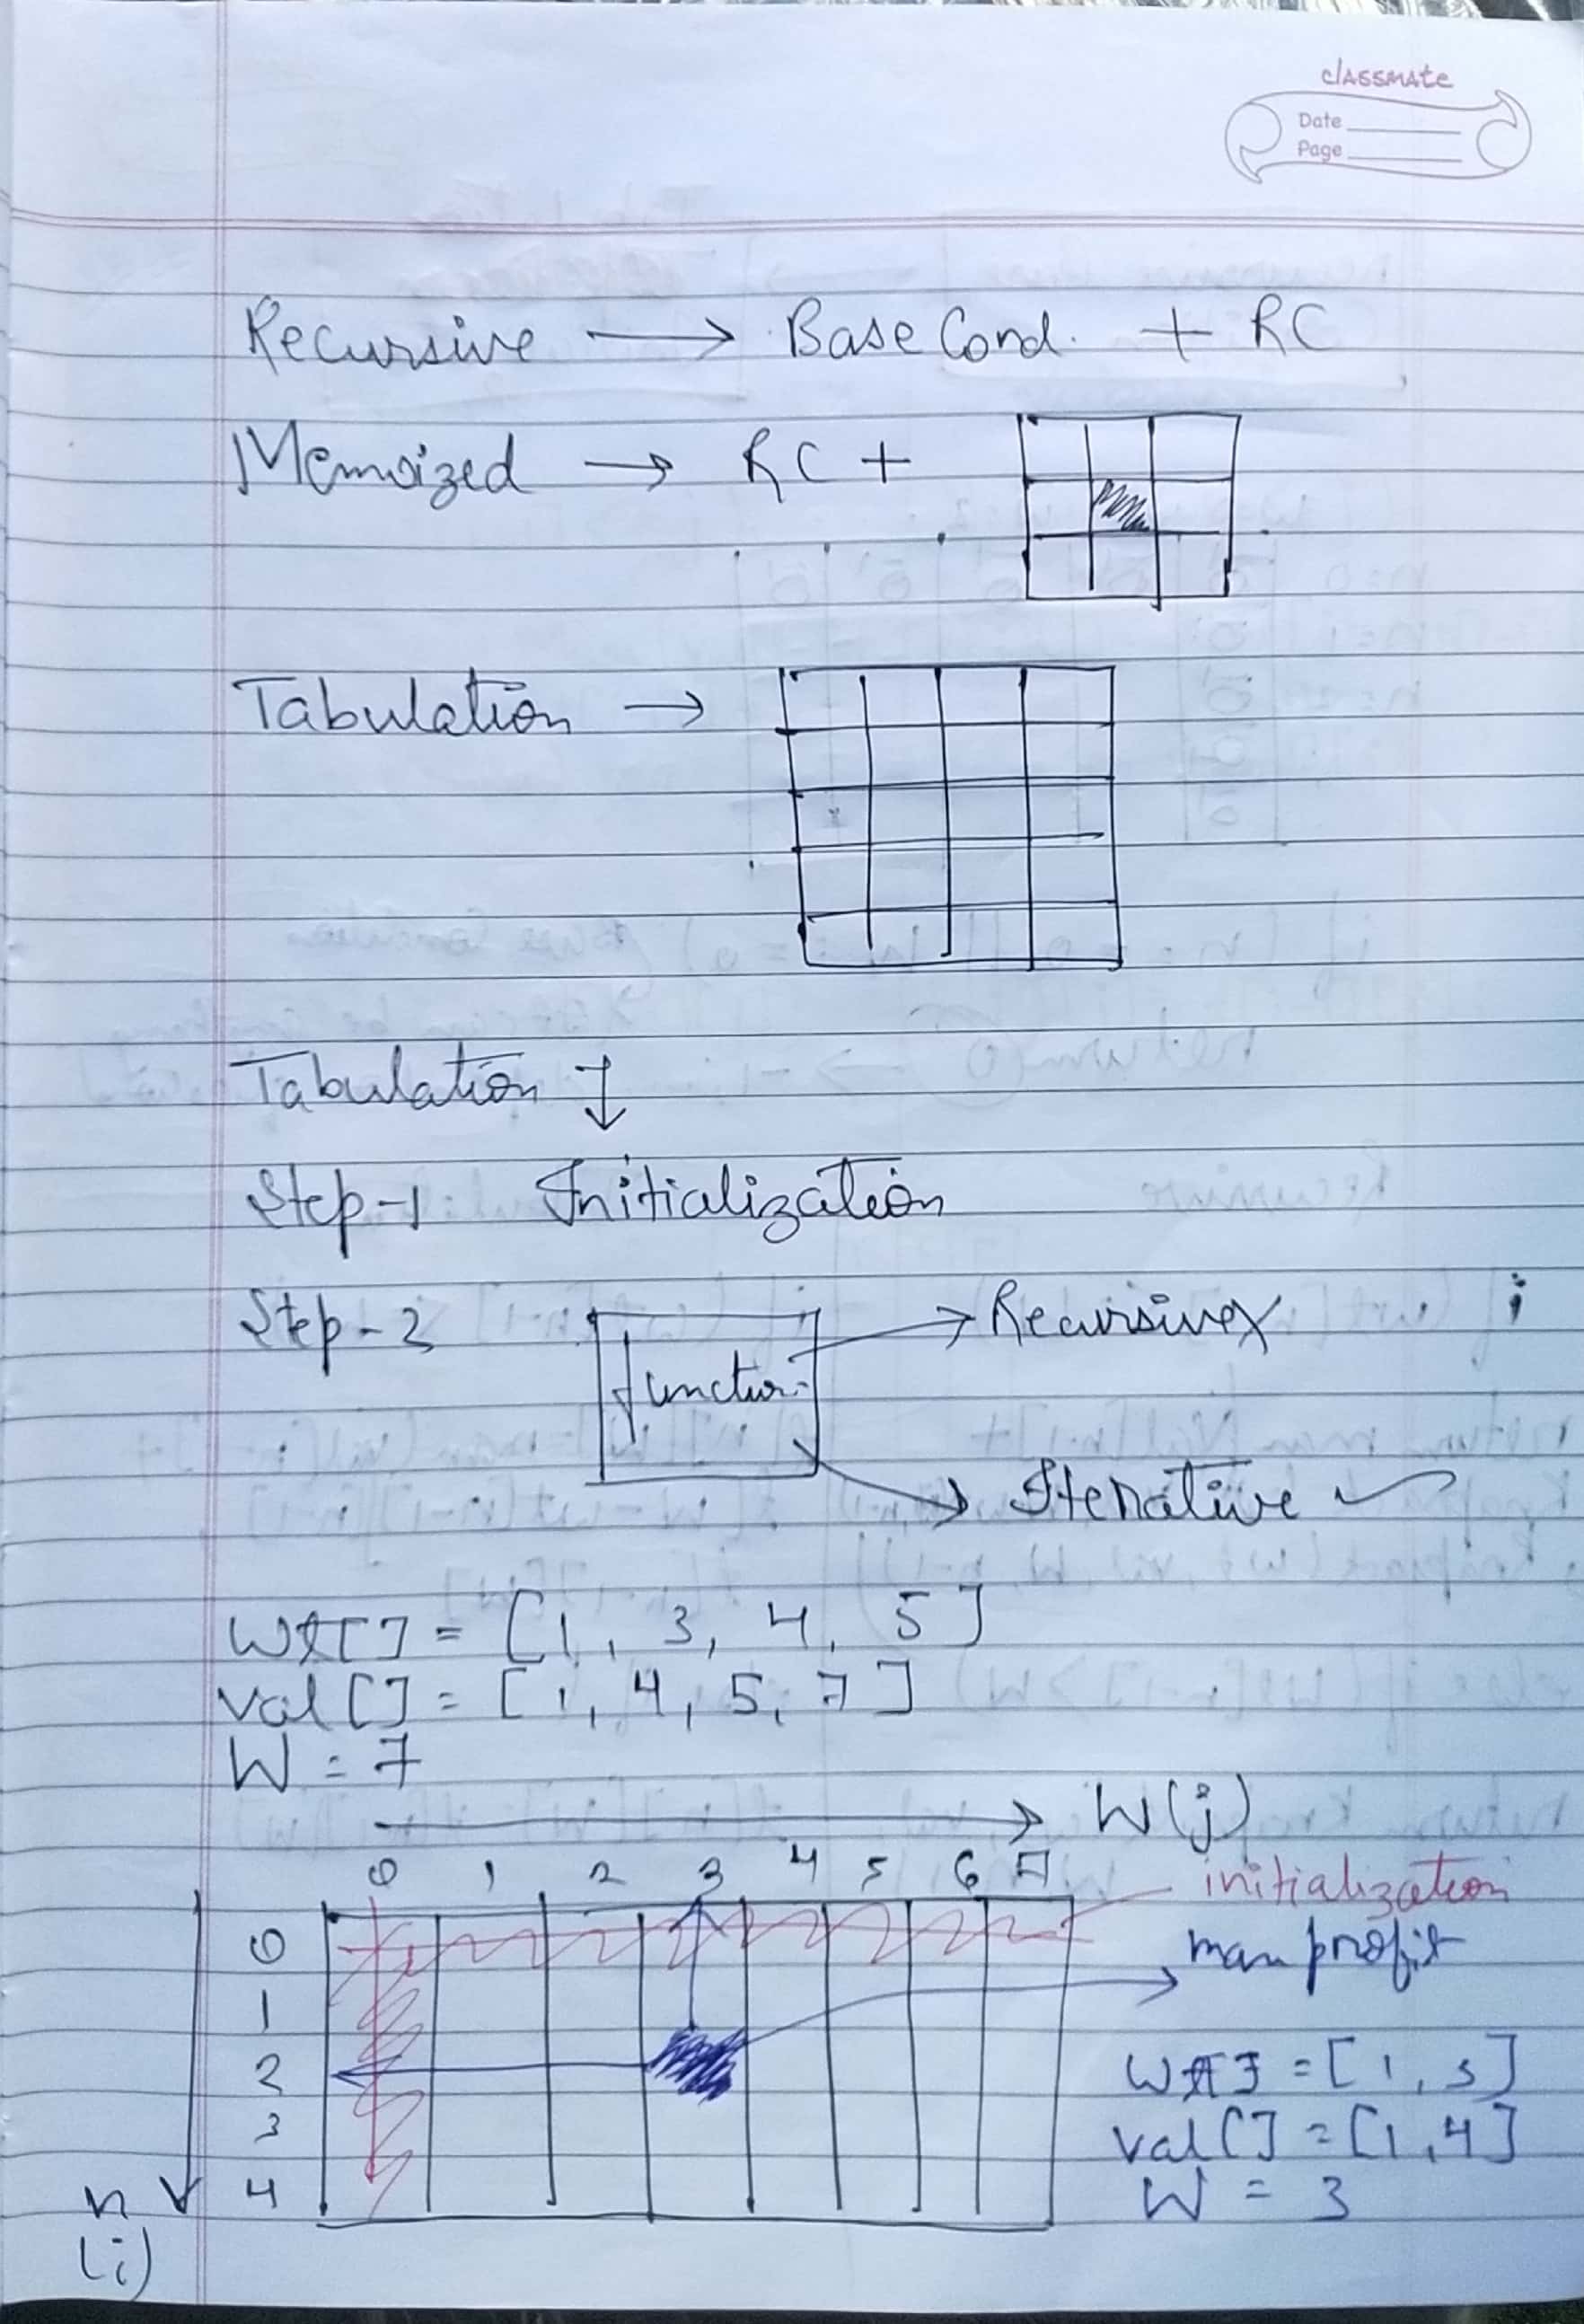 classmate
Date
Page
Recursive → Base Cond. + RC
Memoized → RC +
Tabulation →
Tabulation ↓
Step-1 Initialization
Step-2 function → Recursive ✗ i
→ Iterative ✓
Wt[] = [1, 3, 4, 5]
Val[] = [1, 4, 5, 7]
W = 7
→ W(j)
0 1 2 3 4 5 6 7
initialization
0
max profit
1
2
Wt[] = [1, 3]
3
Val[] = [1, 4]
4
W = 3
n
(i)